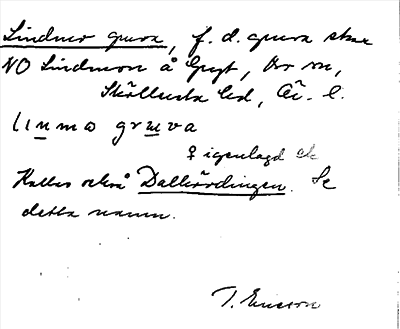 Lindmo gruva, f. d. gruva strax
NO Lindmon å Gryt,
Skållersta sd, Ör. l.
linmo gruva
♀ igenlagd
Kallas också Dalkärdingen. Se
detta namn.
T. Ericson